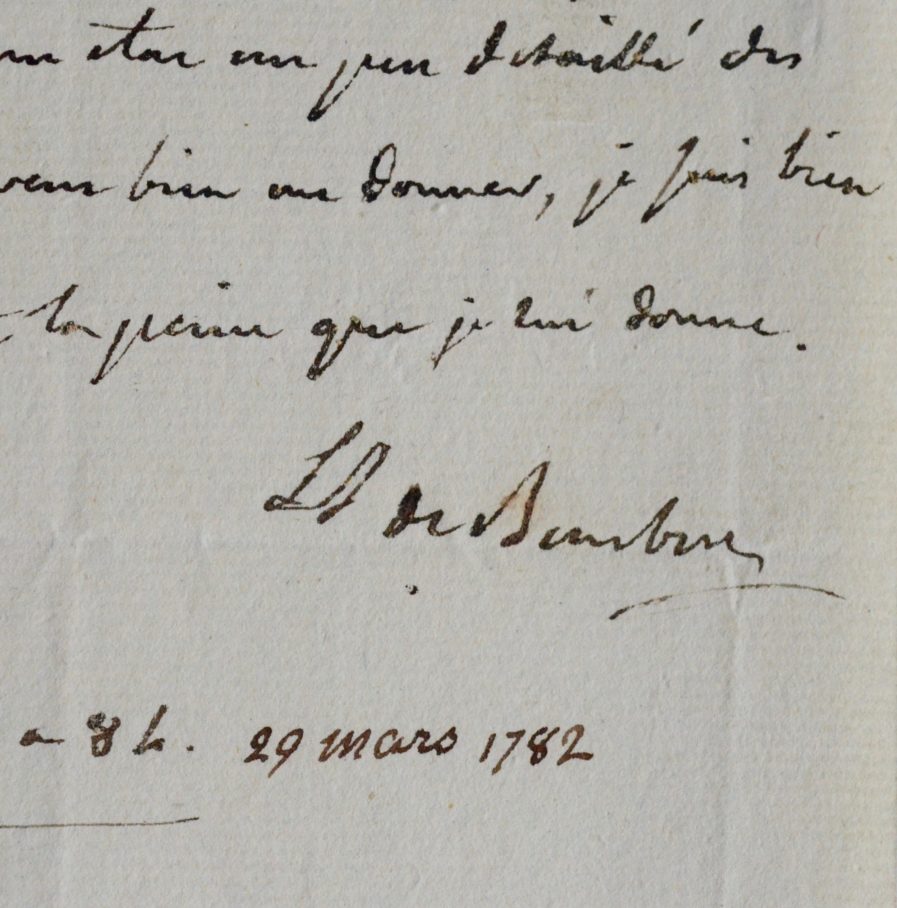 un etat un peu detaillé des
veux bien me donner, je suis bien
la peine que je lui donne.
de Bourbon
a 8 h. 29 mars 1782